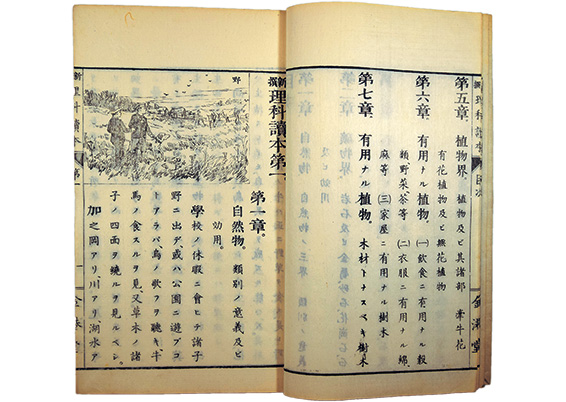 新撰理科讀本 目次
第五章 植物界 植物及ビ其諸部 牽牛花
有花植物及ビ無花植物
第六章 有用ナル植物 (一)飲食ニ有用ナル穀
類野菜茶等 (二)衣服ニ有用ナル綿、
麻等 (三)家屋ニ有用ナル樹木
第七章 有用ナル植物 木材トナスベキ樹木
金港堂
新撰理科讀本第一
野
第一章
自然物 類別ノ意義及ビ
効用
學校ノ休暇ニ會ヒテ諸子
野ニ出デ、或ハ公園ニ遊ブコ
トアラバ、鳥ノ歌フヲ聽キ牛
馬ノ食スルヲ見、又草木ノ諸
子ノ四面ヲ繞ルヲ見ルベシ、
加之岡アリ川アリ、湖水ア
新撰理科讀本 第一
一
金港堂